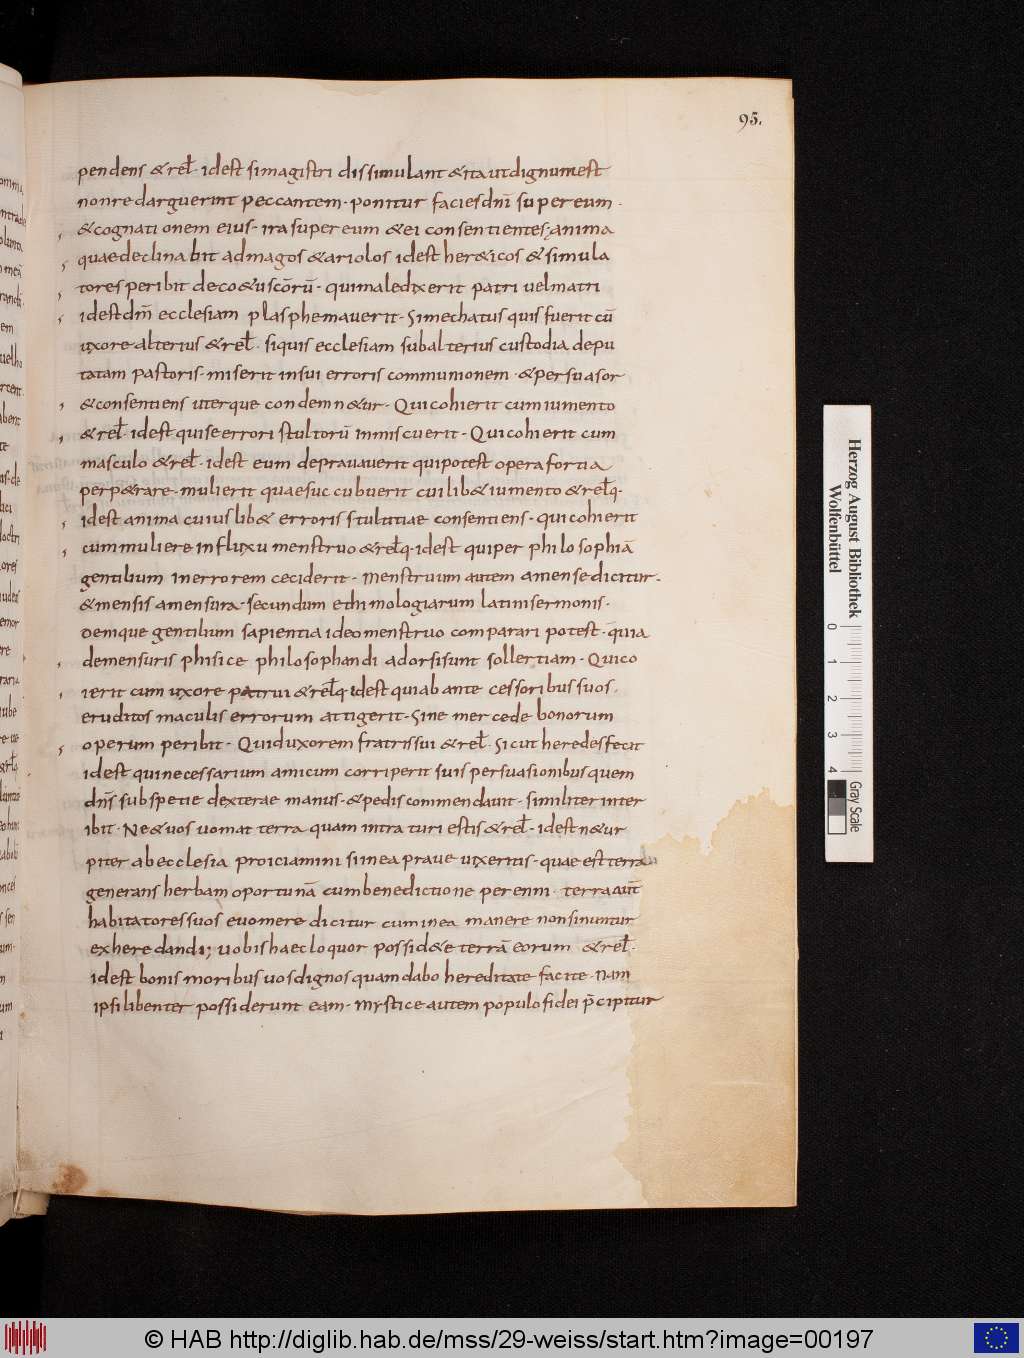 95.
pendens & rel̄· idest simagistri dissimulant & ita ut dignum est
non redarguerint peccantem· ponitur facies dn̄i super eum·
& cognationem eius· ira super eum & ei consentientes; anima
quae declinabit ad magos & ariolos idest her&icos & simula
tores peribit de co&u scōrū· qui maledixerit patri uel matri
idest dm̄ ecclesiam plasphemauerit· Si mechatus quis fuerit cū
uxore alterius & rel̄· siquis ecclesiam sub alterius custodia depu
tatam pastoris· miserit in sui erroris communionem· & persuasor
& consentiens uterque condemn&ur· Qui cohierit cum iumento
& rel̄· idest qui se errori stultorū inmiscuerit· Qui cohierit cum
masculo & rel̄· idest eum deprauauerit qui potest opera fortia
perp&rare· mulierit quae succubuerit cuilib& iumento & rel̄q·
idest anima cuiuslib& erroris stultitiae consentiens· qui cohierit
cum muliere in fluxu menstruo & rel̄q· idest qui per philosophiā
gentilium in errorem ceciderit· menstruum autem a mense dicitur·
& mensis a mensura· secundum ethimologiarum latini sermonis·
Denique gentilium sapientia ideo menstruo comparari potest· quia
de mensuris phisice philosophandi adorsi sunt sollertiam· Qui co
ierit cum uxore patrui & rel̄q idest qui ab antecessoribus suos
eruditos maculis errorum attigerit· Sine mercede bonorum
operum peribit· Qui duxorem fratris sui & rel̄· Sicut herodes fecit
idest qui necessarium amicum corriperit suis persuasionibus quem
dn̄s sub spetie dexterae manus· & pedis commendauit· similiter inter
ibit· Ne &uos uomat terra quam intraturi estis & rel̄· idest n&ur
piter ab ecclesia proiciamini si in ea praue uixeritis· quae est terra
generans herbam oportunā cum benedictione perenni· terra aūt
habitatores suos euomere dicitur cum in ea manere non sinuntur
exheredandi; uobis haec loquor possid&e terrā eorum & rel̄·
idest bonis moribus uos dignos quam dabo hereditate facite· Nam
ipsi libenter possiderunt eam· Mystice autem populo fidei p̄cipitur
Herzog August Bibliothek
Wolfenbüttel
0 1 2 3 4
Gray Scale
© HAB http://diglib.hab.de/mss/29-weiss/start.htm?image=00197